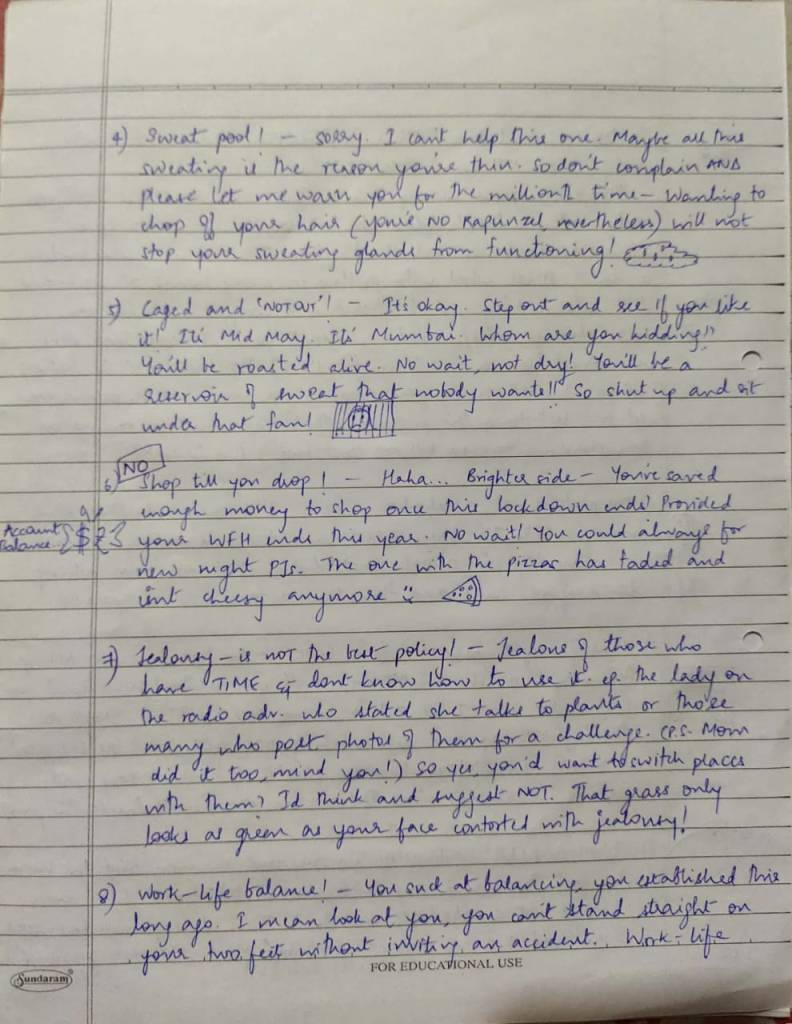 4) Sweat pool! - sorry. I can't help this one. Maybe all this
sweating is the reason you're thin. So don't complain AND
please let me warn you for the millionth time - Wanting to
chop off your hair (you're NO Rapunzel, nevertheless) will not
stop your sweating glands from functioning!
5) Caged and 'NOT OUT'! - It's okay. Step out and see if you like
it! Its Mid May. Its Mumbai. Whom are you kidding!!
You'll be roasted alive. No wait, not dry! You'll be a
reservoir of sweat that nobody wants!! So shut up and sit
under that fan!
NO
6) Shop till you drop! - Haha... Brighter side - You've saved
enough money to shop once this lockdown ends! Provided
Account Balance {$₹} your WFH ends this year. No wait! You could always for
new night PJs. The one with the pizzas has faded and
isnt cheesy anymore
7) Jealousy - is NOT the best policy! - Jealous of those who
have TIME & dont know how to use it. eg. the lady on
the radio adv. who stated she talks to plants or those
many who post photos of them for a challenge. (P.S. Mom
did it too, mind you!) So yes, you'd want to switch places
with them? I'd think and suggest NOT. That grass only
looks as green as your face contorted with jealousy!
8) Work-life balance! - You suck at balancing, you established this
long ago. I mean look at you, you can't stand straight on
your two feet without inviting an accident. Work-life
Sundaram
FOR EDUCATIONAL USE